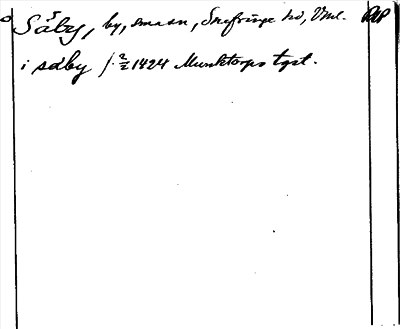 Säby, by, smasn, Snefringe hd, Vml. RAP
i sæby /. 2/2 1424 Munktorps tgst.